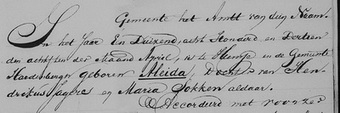 Gemeente het Ambt van dien Naam
In het Jaar Een Duizend, acht Honderd en Dertien
den achtsten der Maand April, is te Heemse in de Gemeente
Hardenbergh geboren Aleida, Dochter van Hen-
drikus Jagers en Maria Dokken aldaar.
Accordeerd met voorzeg